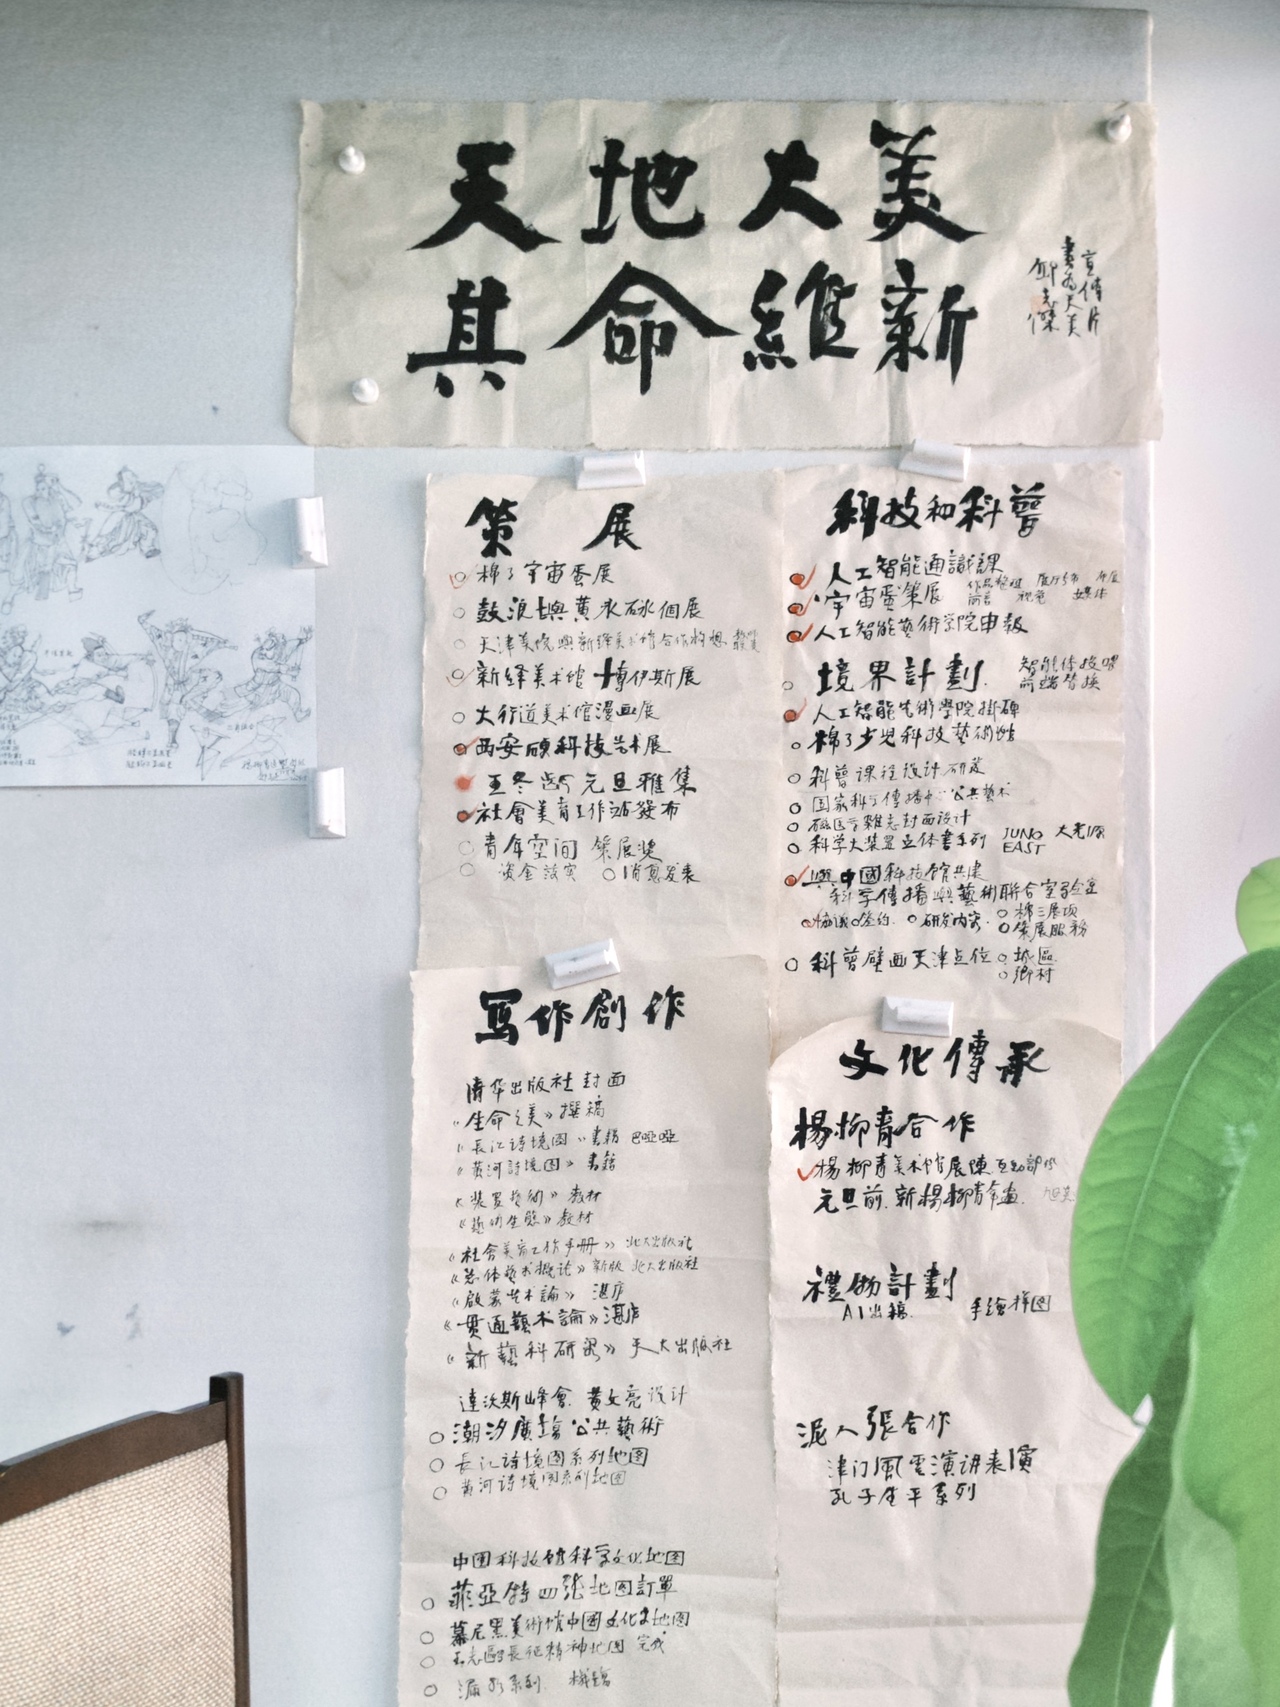 天地大美
其命維新
宣傳片
書為天美
邱志傑
策 展
棉了宇宙蛋展
鼓浪嶼與黃永砅個展
天津美院與新绎美术馆合作构想
新绎美术馆 博伊斯展
太行道美术馆漫画展
西安碩科技艺术展
元旦雅集
社會美育工作 發布
青年空间 策展奖
资金落实 消息发表
科技和科普
人工智能通識課
宇宙蛋策展
前言 视觉 媒体
人工智能藝術學院申報
境界計劃
前端替换
人工智能艺術學院掛碑
棉了少児科技藝術館
科普课程设计研发
国家科学傳播中心公共藝术
雜志封面设计
科学大装置立体書系列 JUNO
EAST
與中國科技館共建
科学傳播與藝術聯合实验室
协议 签约 研发内容 棉三展项
策展服務
科普壁画天津点位 城區
鄉村
寫作創作
清华出版社封面
《生命之美》撰稿
《長江诗境图》書籍
《黄河詩境图》書籍
《装置藝術》教材
《藝術生態》教材
《社会美育工作手册》北大出版社
《总体藝术概论》新版 北大出版社
《啟蒙艺术論》湛庐
《贯通藝术論》湛庐
《新藝科研究》天大出版社
達沃斯峰會 黄文亮设计
潮汐廣場公共藝術
長江诗境图系列地图
黄河诗境图系列地图
中国科技馆科学文化地图
菲亚特四张地图訂單
慕尼黑美術馆中國文化地图
長征精神地图 完成
系列
文化傳承
楊柳青合作
楊柳青美术館展陳互动部分
元旦前 新楊柳青年畫
禮物計劃
AI出稿 手繪样图
泥人張合作
津门風雲演讲表演
孔子生平系列